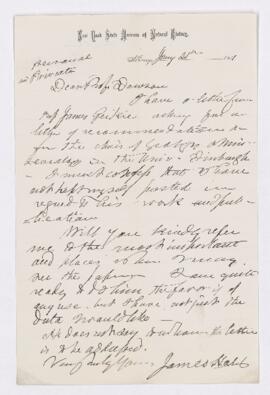 New York State Museum of Natural History,
Albany, 188
Personal
Private
Dear Prof. Dawson
I have a letter from
Prof James Geikie asking for a
letter of recommendation
for the chair of Geology & Min-
eralogy in the Univ. Edinburgh
I must confess that I have
not kept myself posted in
regard to his work and pub-
lication
Will you kindly refer
me to the most important
and places where I may
see the papers I am quite
ready to do him the favor if of
any use, but I have not just the
data I would like
He does not say to whom the letter
is to be addressed.
Very truly yours,
James Hall